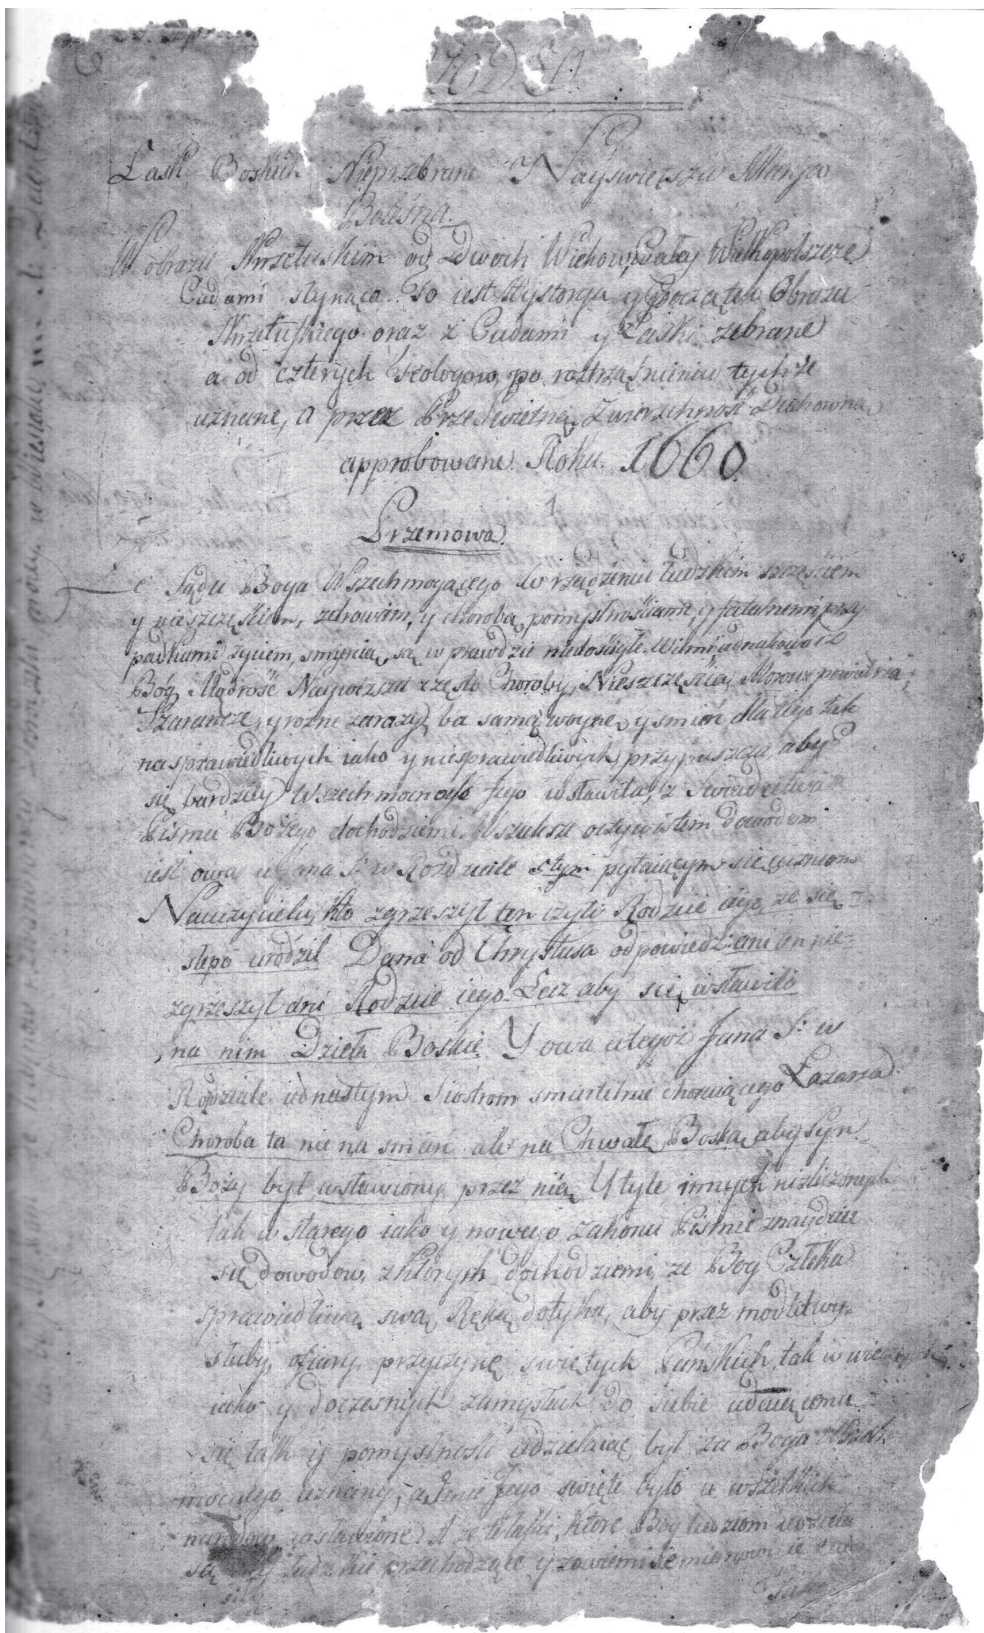 Łask Boskich Nieprzebrane Nayświętsza Marya
Bolesna.
W obrazu Skrzetuskim od Dwóch Wieków całey Wielkopolszcze
Cudami słynąca. To iest Hystorya y Początek Obrazu
Skrzetuskiego oraz z Cudami y Łaski zebrane
a od czterych Teologow po roztrząśnieniu tychże
uznane, a przez Prześwietną Zwierzchność Duchowną
approbowane Roku 1660
1
Przemowa.
Sądu Boga Wszechmogącego w rządzeniu ludzkim szczęściem
y nieszczęściem, zdrowiem, y chorobą, pomyślnościami, y fatalnemi przy
padkami życiem, śmiercią są w prawdzie niedościgłe
Bóg Mądrość Naywyższa często Choroby, Nieszczęścia, Morowe powietrza,
Szarańcze, y rozne zarazy, ba samą woynę, y śmierć dla tego tak
na sprawiedliwych iako y niesprawiedliwych przypuszcza, aby
się bardziey Wszechmocność Jego wsławiła, z świadectwa
Pisma Bożego dochodziemi. Wszakże oczywistem dowodem
iest owa u Jana S: w Rozdziale 9tym pytaiącym się uczniom
Nauczycielu, kto zgrzeszył ten czyli Rodzice iego, że się
ślepo urodził Dana od Chrystusa odpowiedz: ani ten nie
zgrzeszył ani Rodzice iego. Lecz aby się wsławiło
na nim Dzieła Boskie. Y owa u tegoż Jana S: w
Rozdziale iednastym Siostrom śmiertelnie choruiącego Łazarza
Choroba ta nie na śmierć ale na Chwałę Boską, aby Syn
Boży był wsławiony przez nią. Y tyle innych niezliczonych
tak w starego iako y nowego zakonu Piśmie znayduie
się dowodow, z których dochodziemi, że Bóg Człeka
sprawiedliwą swą Ręką dotyka, aby przez modlitwy
śluby, ofiary, przyczynę świętych Pańskich, tak w
iako y doczesnych zamysłach do siebie udaiącemu
się łask y pomyślność udzielaiąc był za Boga Wszech
mocnego uznany, a Imie Jego święte było u wszystkich
narodow wsławione. A że te łaski, które Bóg ludziom udziela
są ludzkie przechodzące y